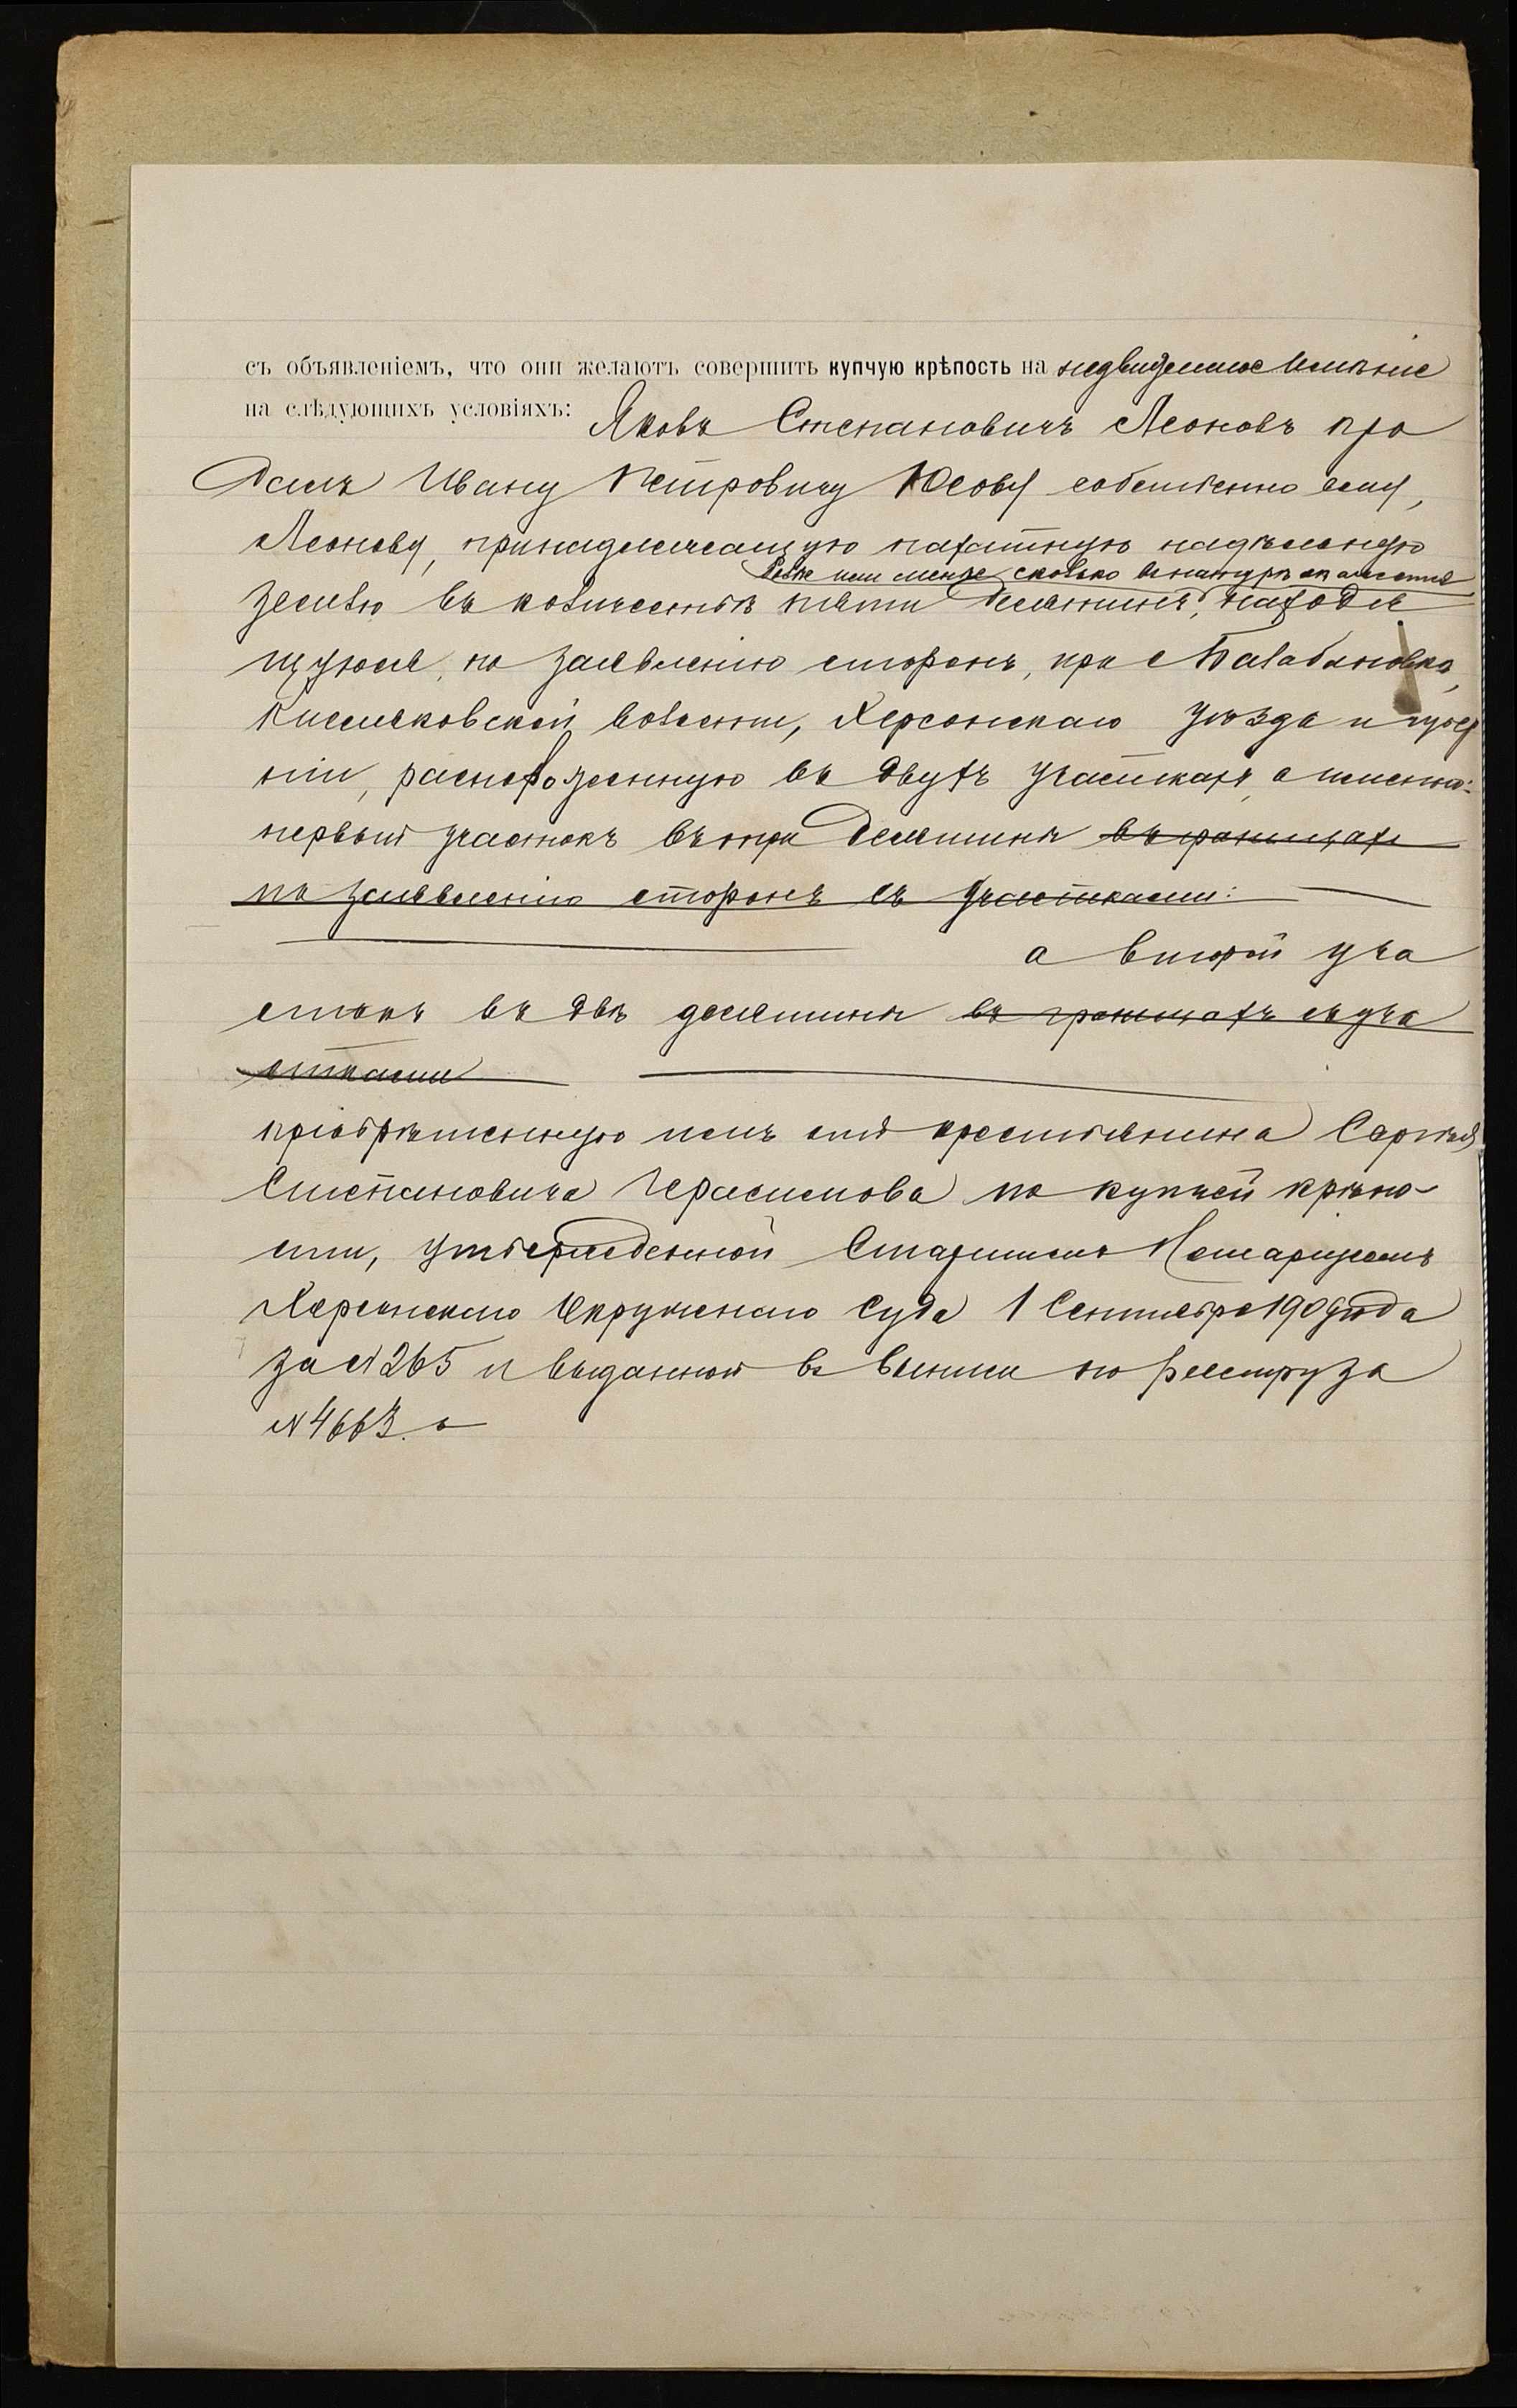 съ объявленіемъ, что они желаютъ совершить купчую крѣпость на недвижимое имѣніе
на слѣдующихъ условіяхъ: Яковъ Степановичъ Леоновъ про
далъ Ивану Петровичу Юсову собственно ему,
Леонову, принадлежащую пахатную надѣльную
болѣе или менѣе, сколько въ натурѣ окажется
землю въ количествѣ пяти десятинъ, находя
щуюся, по заявленію сторонъ, при с Балабановка,
Кисляковской волости, Херсонскаго уѣзда и губер
ніи, расположенную въ двухъ участкахъ, а именно:
первый участокъ въ три десятины въ границахъ
по заявленію сторонъ съ участками:
а второй уча
стокъ въ двѣ десятины въ границахъ съ уча
стками
пріобрѣтенную имъ отъ крестьянина Сергѣя
Степановича Герасимова по купчей крѣпо-
сти, утвержденной Старшимъ Нотаріусомъ
Херсонскаго Окружнаго Суда 1 Сентября 1909 года
за № 265 и выданной въ выписи по реестру за
№ 4663.